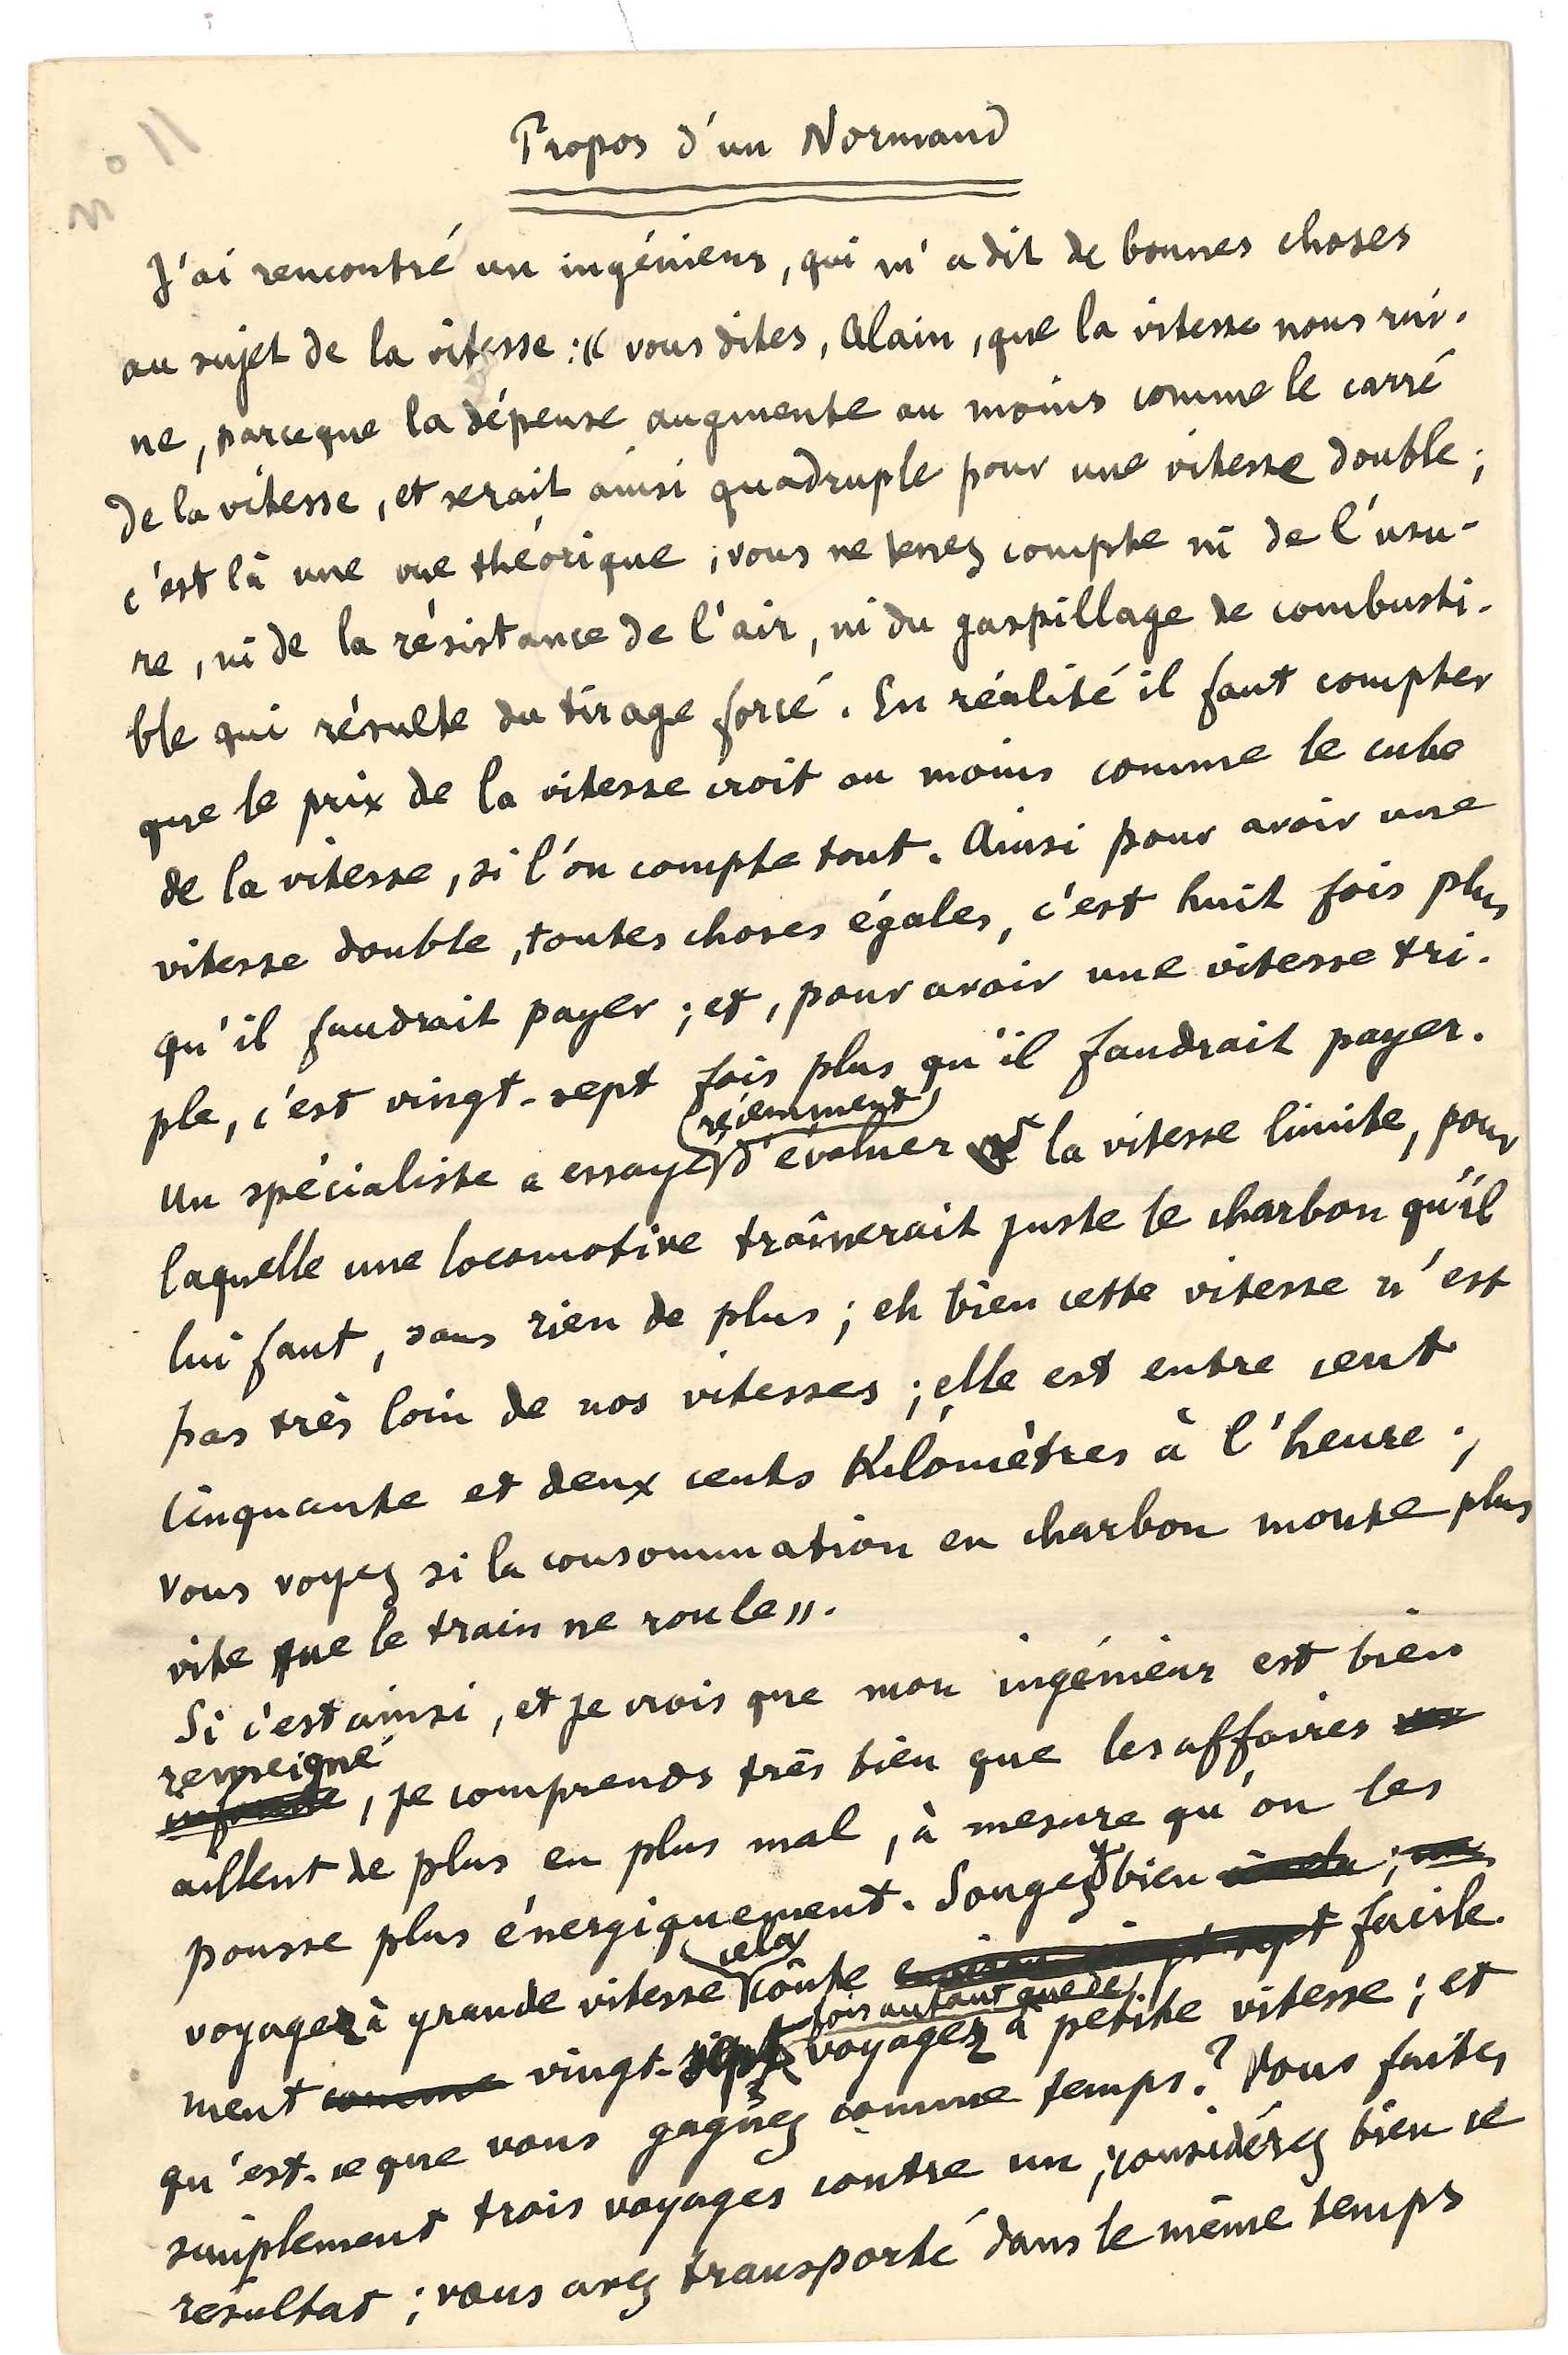 n° 11
Propos d'un Normand
J'ai rencontré un ingénieur, qui m'a dit de bonnes choses
au sujet de la vitesse : « vous dites, Alain, que la vitesse nous rui-
ne, parceque la dépense augmente au moins comme le carré
de la vitesse, et serait ainsi quadruple pour une vitesse double ;
c'est là une vue théorique ; vous ne tenez compte ni de l'usu-
re, ni de la résistance de l'air, ni du gaspillage de combusti-
ble qui résulte du tirage forcé. En réalité il faut compter
que le prix de la vitesse croit au moins comme le cube
de la vitesse, si l'on compte tout. Ainsi pour avoir une
vitesse double, toutes choses égales, c'est huit fois plus
qu'il faudrait payer ; et, pour avoir une vitesse tri-
ple, c'est vingt-sept fois plus qu'il faudrait payer.
récemment
Un spécialiste a essayé d'évaluer la vitesse limite, pour
laquelle une locomotive traînerait juste le charbon qu'il
lui faut, sans rien de plus ; eh bien cette vitesse n'est
pas très loin de nos vitesses ; elle est entre cent
cinquante et deux cents Kilomètres à l'heure ;
vous voyez si la consommation en charbon monte plus
vite que le train ne roule ».
Si c'est ainsi, et je crois que mon ingénieur est bien
renseigné
, je comprends très bien que les affaires
aillent de plus en plus mal, à mesure qu'on les
pousse plus énergiquement. Songez bien ;
cela
voyager à grande vitesse coûte facile-
fois autant que de
ment comme vingt-sept voyager à petite vitesse ; et
qu'est-ce que vous gagnez comme temps ? Vous faites
simplement trois voyages contre un ; considérez bien ce
résultat ; vous avez transporté dans le même temps